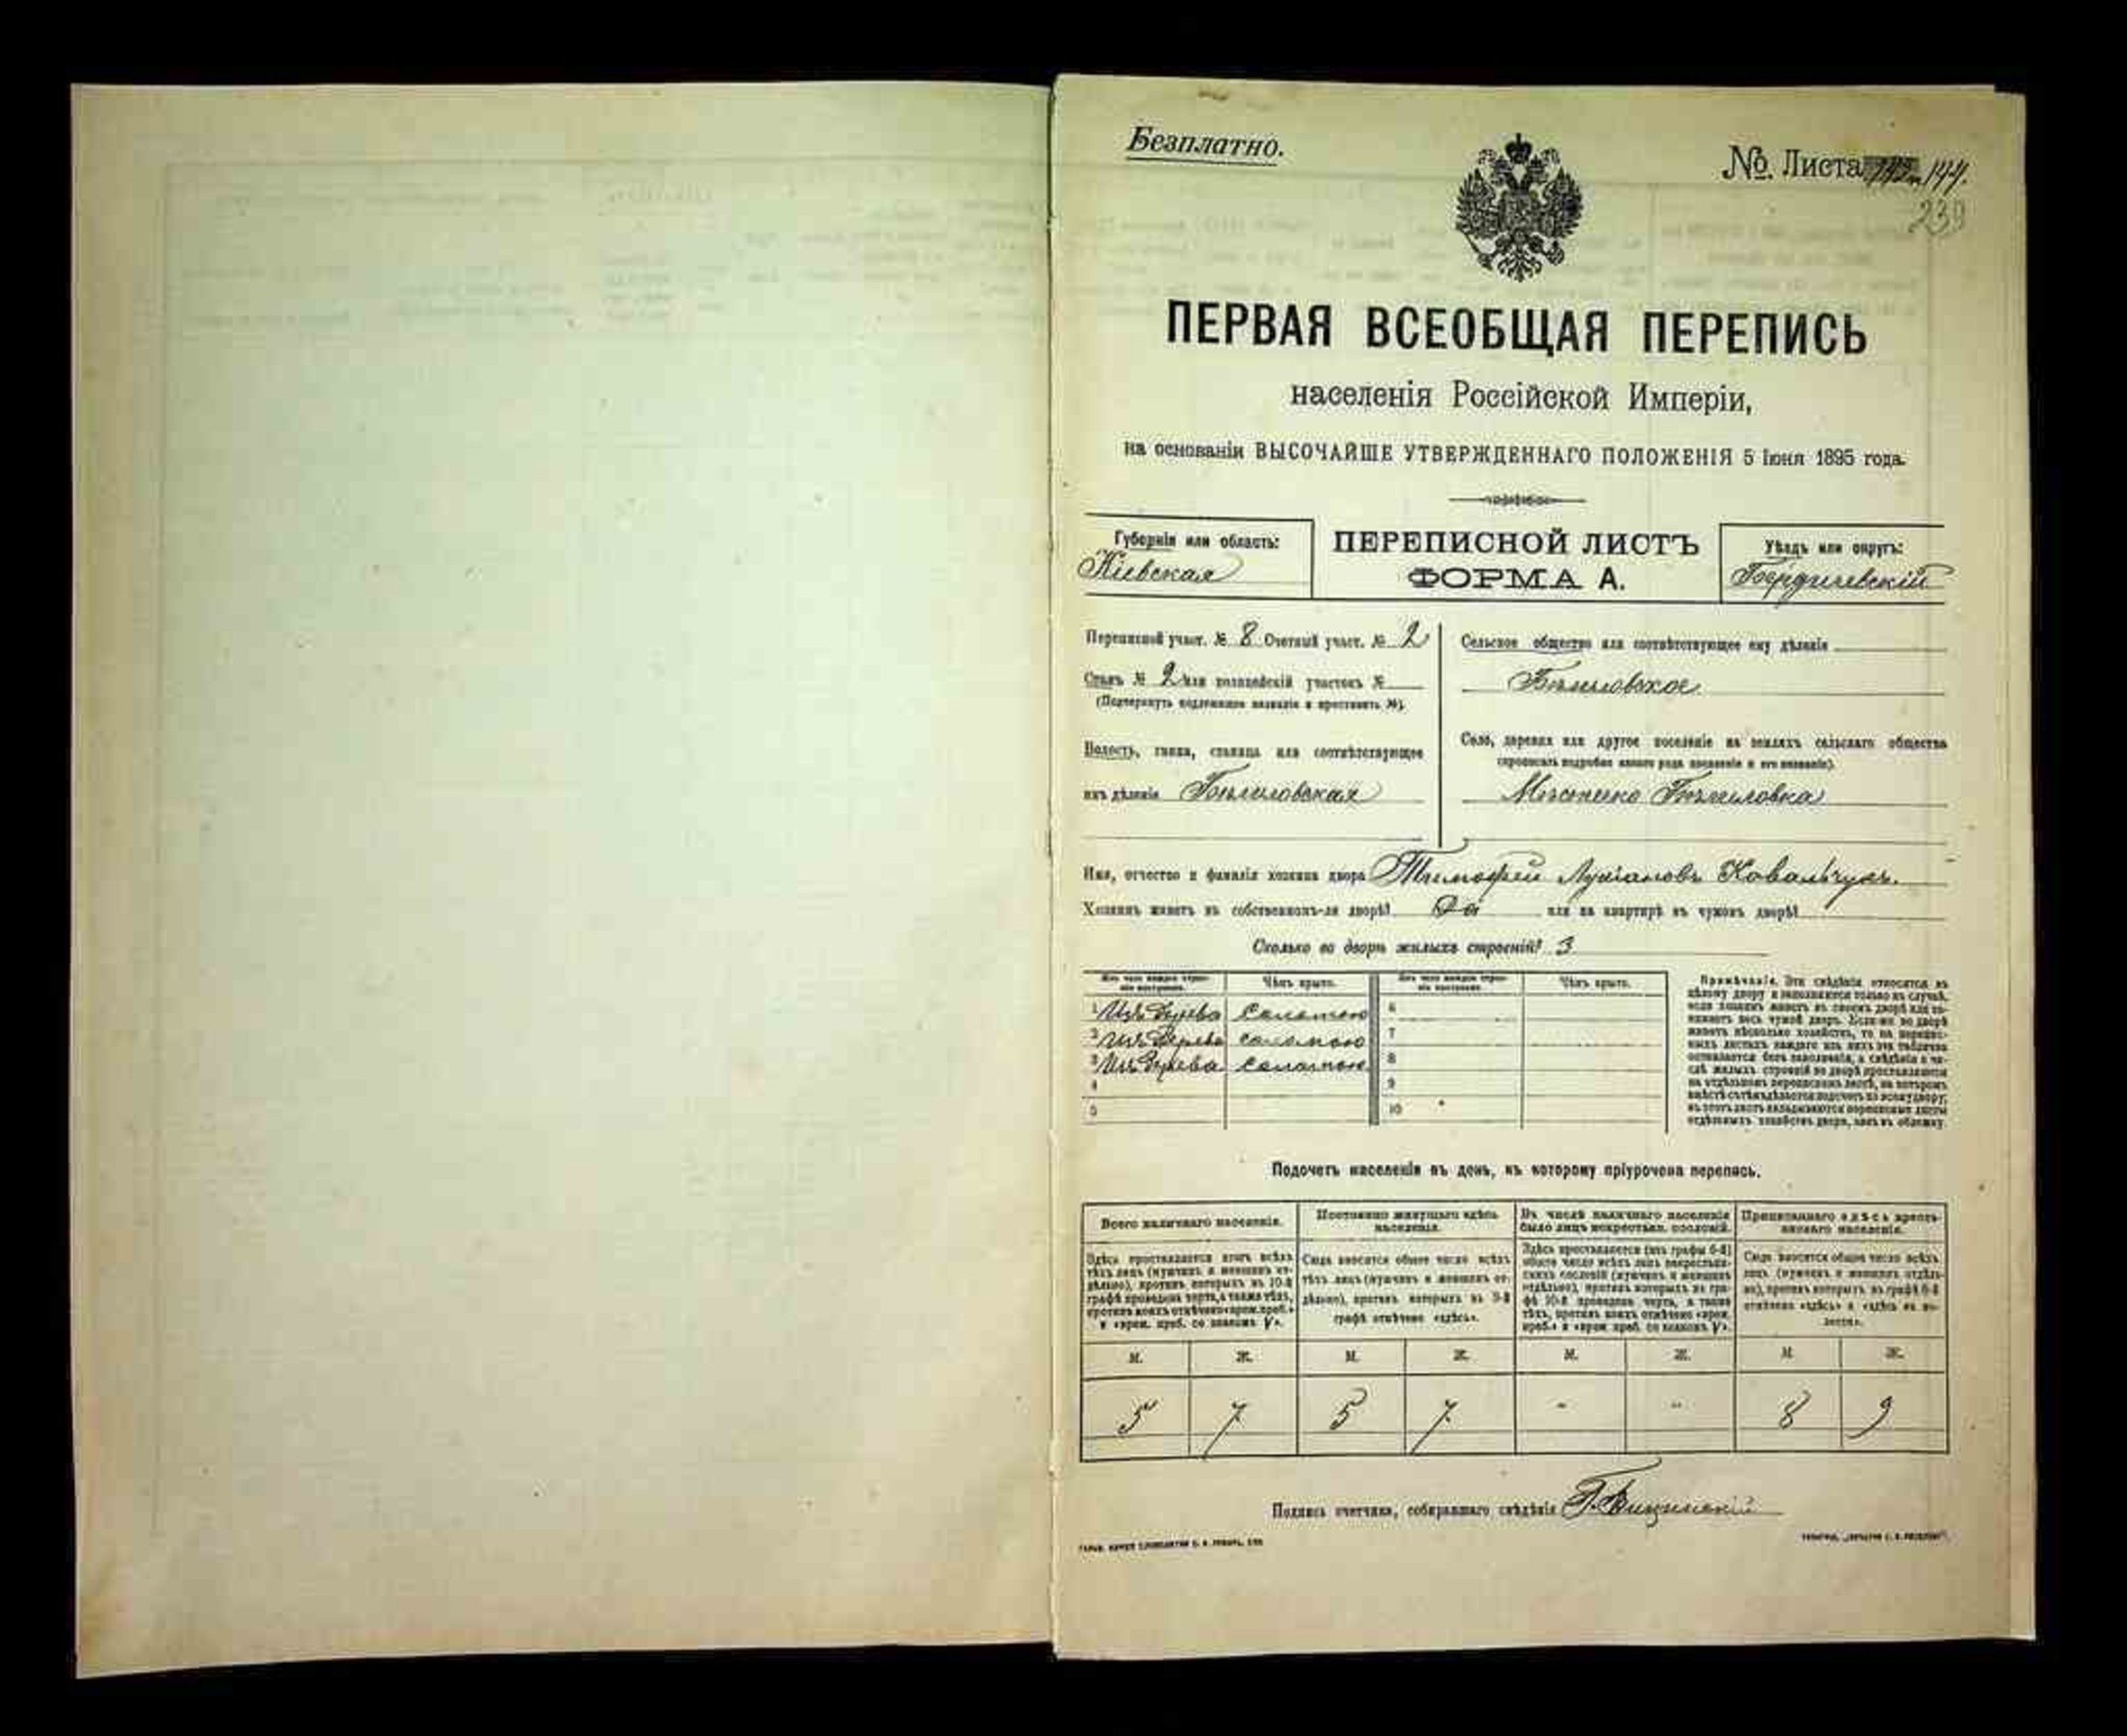 Безплатно.
№. Листа 144.
239
ПЕРВАЯ ВСЕОБЩАЯ ПЕРЕПИСЬ
населенія Россійской Имперіи,
на основаніи ВЫСОЧАЙШЕ УТВЕРЖДЕННАГО ПОЛОЖЕНІЯ 5 Іюня 1895 года.
Губернія или область:
Кіевская
ПЕРЕПИСНОЙ ЛИСТЪ
ФОРМА А.
Уѣздъ или округъ:
Бердичевскій
Переписной участ. № 8 Счетный участ. № 2
Станъ № 2 или полицейскій участокъ №
(Подчеркнуть подлежащее названіе и проставить №).
Волость, гмина, станица или соотвѣтствующее
имъ дѣленіе Бѣлиловская
Сельское общество или соотвѣтствующее ему дѣленіе
Бѣлиловское
Село, деревня или другое поселеніе на земляхъ сельскаго общества
(прописать подробно какого рода поселеніе и его названіе).
Мѣстечко Бѣлиловка
Имя, отчество и фамилія хозяина двора Тимофей Лукіановъ Ковальчукъ.
Хозяинъ живетъ въ собственномъ-ли дворѣ? Да или на квартирѣ въ чужомъ дворѣ?
Сколько во дворѣ жилыхъ строеній? 3
Изъ чего каждое строеніе построено. Чѣмъ крыто. Изъ чего каждое строеніе построено. Чѣмъ крыто.
1 Изъ дерева Соломою 6
2 Изъ дерева соломою 7
3 Изъ дерева соломою 8
4 9
5 10
Примѣчаніе. Эти свѣдѣнія относятся къ
цѣлому двору и заполняются только въ случаѣ,
если хозяинъ живетъ въ своемъ дворѣ или занимаетъ
весь чужой дворъ. Если-же во дворѣ
живетъ нѣсколько хозяйствъ, то на переписныхъ
листахъ каждаго изъ нихъ эта табличка
оставляется безъ заполненія, а свѣдѣнія о числѣ
жилыхъ строеній во дворѣ проставляются
на отдѣльномъ переписномъ листѣ, на которомъ
вмѣстѣ съ тѣмъ дѣлается подсчетъ по всему двору;
въ этотъ листъ вкладываются переписные листы
отдѣльныхъ хозяйствъ двора, какъ въ обложку.
Подсчетъ населенія въ день, къ которому пріурочена перепись.
Всего наличнаго населенія.
Постоянно живущаго здѣсь
населенія.
Въ числѣ наличнаго населенія
было лицъ некрестьян. сословій.
Приписаннаго здѣсь крестьянскаго
населенія.
Здѣсь проставляется итогъ всѣхъ
тѣхъ лицъ (мужчинъ и женщинъ отдѣльно),
противъ которыхъ въ 10-й
графѣ проведена черта, а также тѣхъ,
противъ коихъ отмѣчено «врем. преб.»
и «врем. преб. со знакомъ V».
Сюда вносится общее число всѣхъ
тѣхъ лицъ (мужчинъ и женщинъ отдѣльно),
противъ которыхъ въ 9-й
графѣ отмѣчено «здѣсь».
Здѣсь проставляется (изъ графы 6-й)
общее число всѣхъ лицъ некрестьянскихъ
сословій (мужчинъ и женщинъ
отдѣльно), противъ которыхъ въ графѣ
10-й проведена черта, а также
тѣхъ, противъ коихъ отмѣчено «врем.
преб.» и «врем. преб. со знакомъ V».
Сюда вносится общее число всѣхъ
лицъ (мужчинъ и женщинъ отдѣльно),
противъ которыхъ въ графѣ 8-й
отмѣчено «здѣсь» и «здѣсь въ волости».
М. Ж. М. Ж. М. Ж. М. Ж.
5 7 5 7 " " 8 9
Подпись счетчика, собиравшаго свѣдѣнія